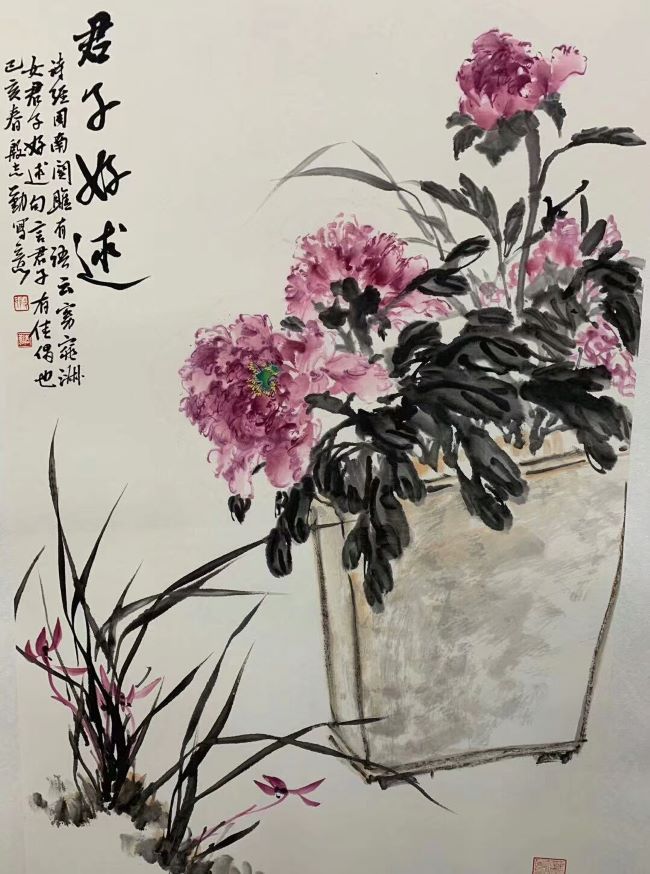 君子好逑
诗经周南关雎有语云窈窕淑
女君子好逑句言君子有佳偶也
己亥春殷志勤写意